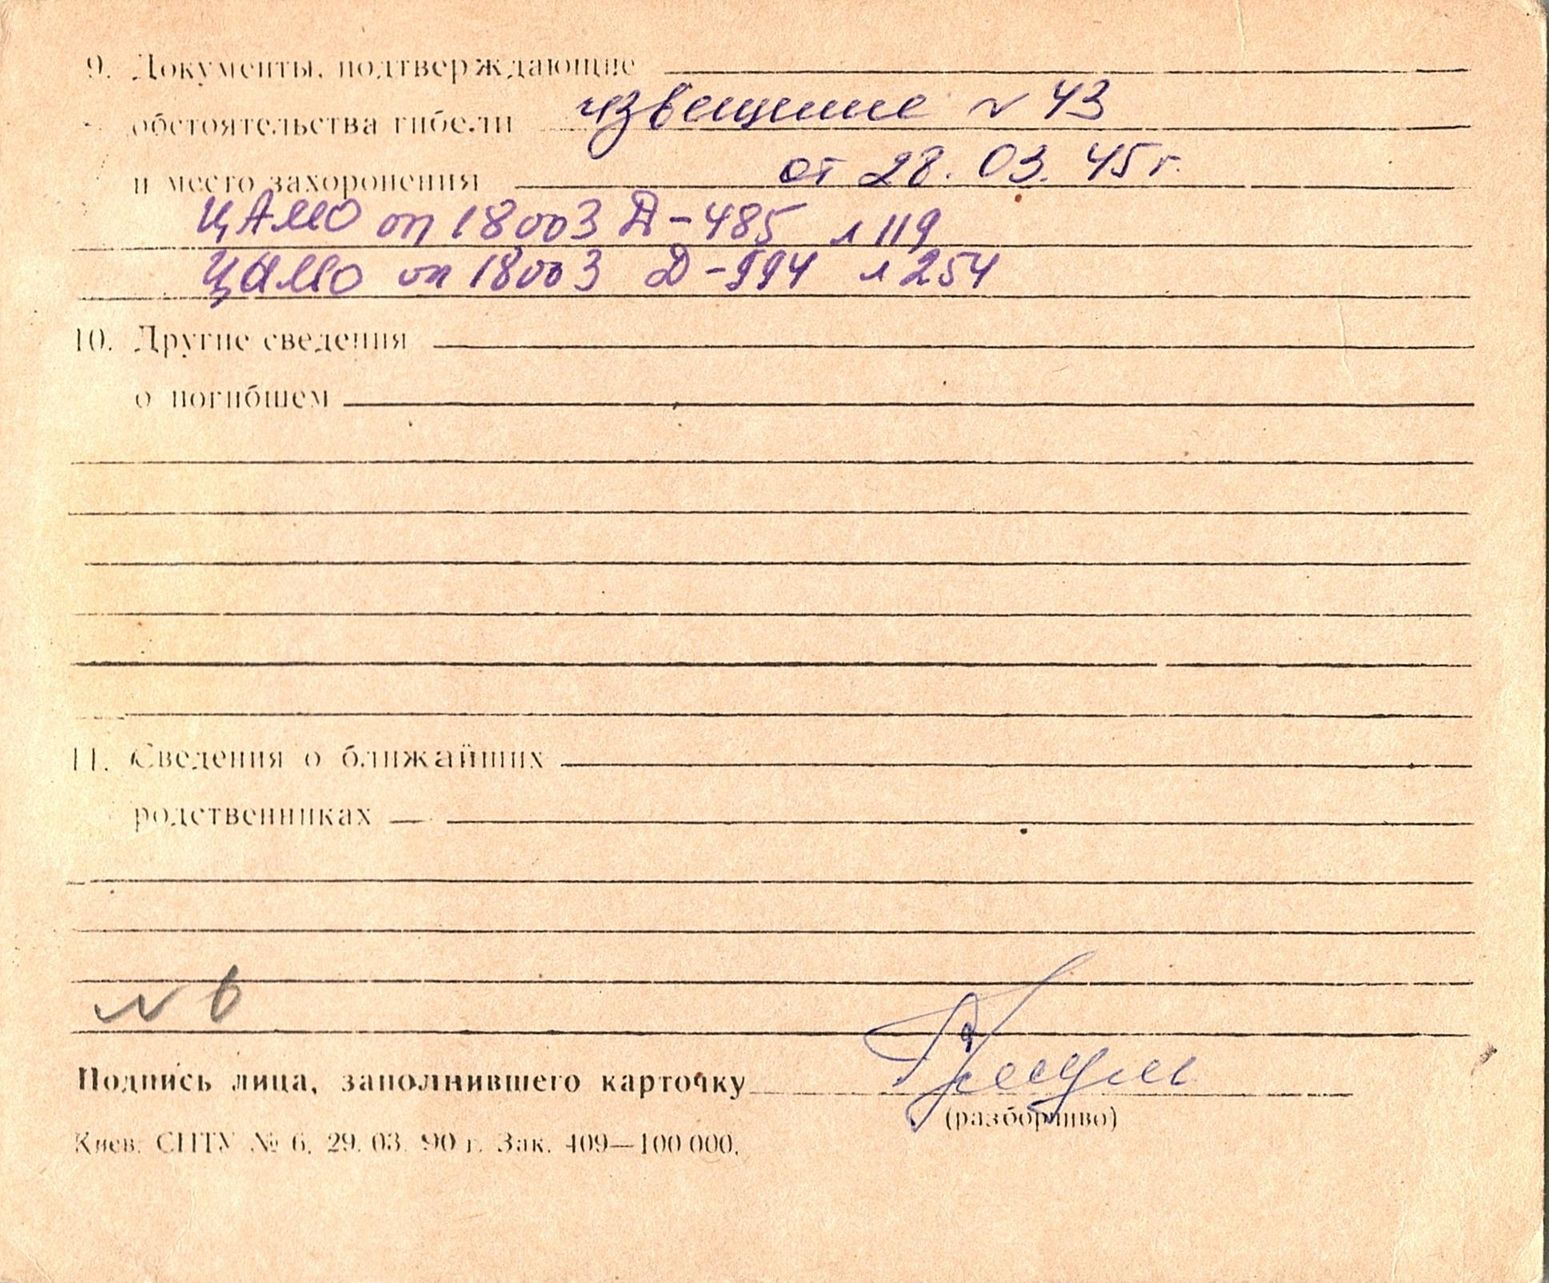 9. Документы, подтверждающие
обстоятельства гибели извещение N 43
и место захоронения от 28.03.45 г.
ЦАМО оп 18003 Д-485 л 119
ЦАМО оп 18003 Д-994 л 254
10. Другие сведения
о погибшем
11. Сведения о ближайших
родственниках
N 6
Подпись лица, заполнившего карточку
(разборчиво)
Киев. СПТУ № 6. 29. 03. 90 г. Зак. 409—100 000.